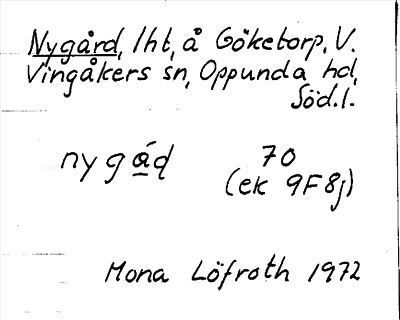 Nygård, lht, å Göketorp, V.
Vingåkers sn, Oppunda hd,
Söd.l.
nygá̱ḍ 70
(ek 9F8j)
Mona Löfroth 1972